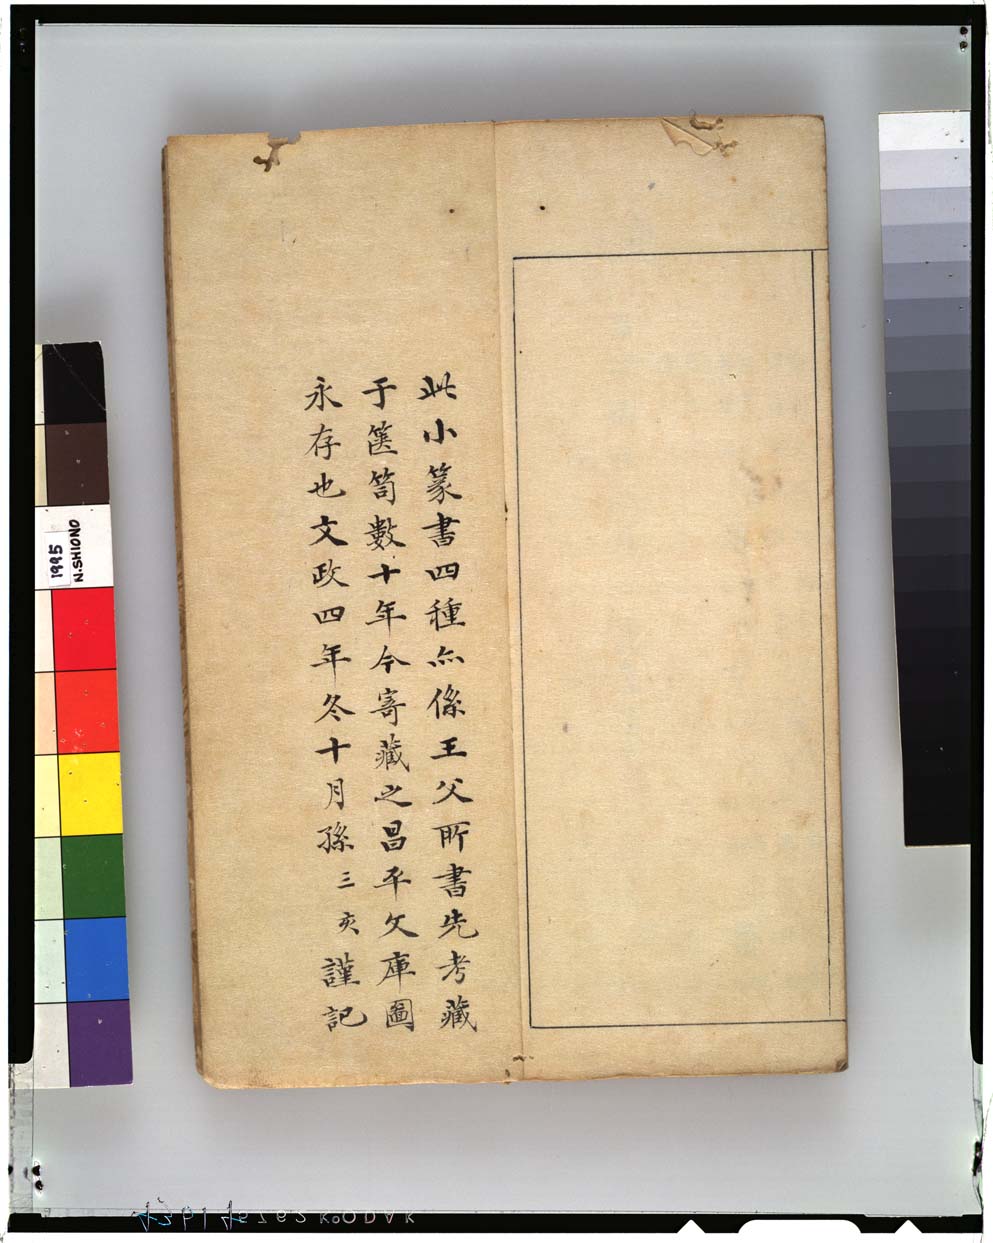 此小篆書四種亦係王父所書先考藏
于篋笥數十年今寄藏之昌平文庫圖
永存也文政四年冬十月孫三亥謹記
1995
N.SHIONO
KODAK